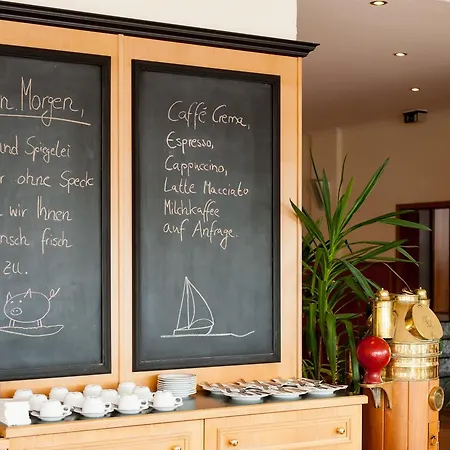 n Morgen,
nd Spiegelei
r ohne Speck
wir Ihnen
nsch frisch
zu.
Caffé Crema,
Espresso,
Cappuccino,
Latte Macciato
Milchkaffee
auf Anfrage.